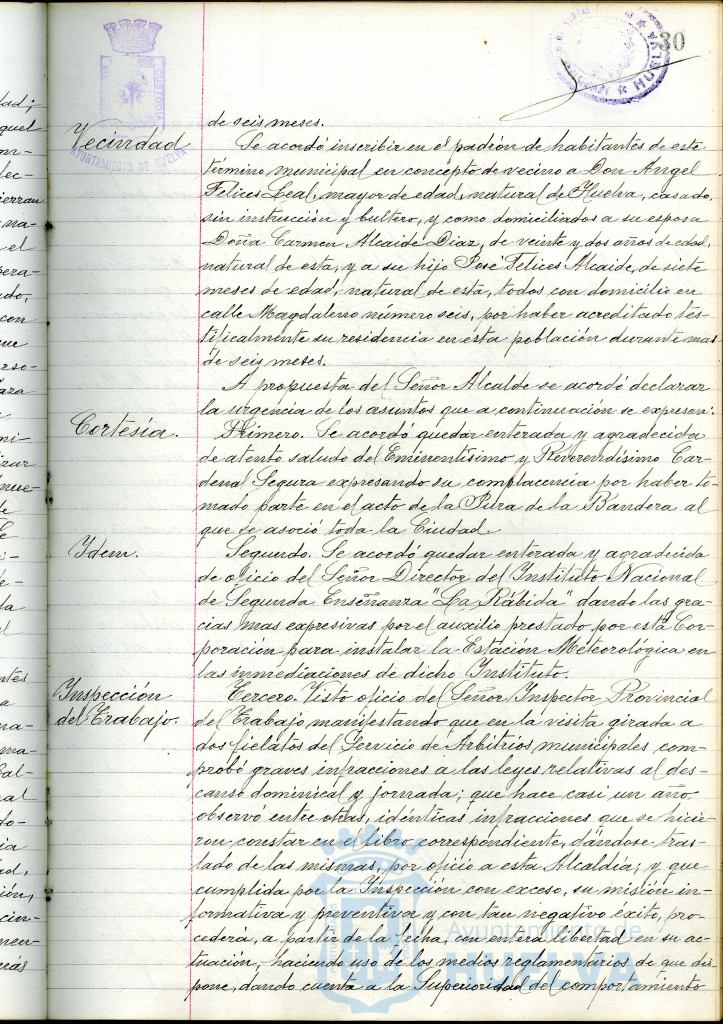 30
AYUNTAMIENTO DE HUELVA
HUELVA
de seis meses.
Vecindad
Se acordó inscribir en el padrón de habitantes de este
término municipal en concepto de vecino a Don Angel
Felices Leal, mayor de edad, natural de Huelva, casado,
sin instrucción y bultero, y como domiciliados a su esposa
Doña Carmen Alcaide Diaz, de veinte y dos años de edad,
natural de esta, y a su hijo José Felices Alcaide, de siete
meses de edad, natural de esta, todos con domicilio en
calle Magdaleno número seis, por haber acreditado tes-
tificalmente su residencia en esta población durante mas
de seis meses.
A propuesta del Señor Alcalde se acordó declarar
la urgencia de los asuntos que a continuación se expresen:
Cortesía.
Primero. Se acordó quedar enterada y agradecida
de atento saludo del Eminentísimo y Reverendísimo Car-
denal Segura expresando su complacencia por haber to-
mado parte en el acto de la Jura de la Bandera al
que se asoció toda la Ciudad.
Idem.
Segundo. Se acordó quedar enterada y agradecida
de oficio del Señor Director del Instituto Nacional
de Segunda Enseñanza "La Rábida" dando las gra-
cias mas expresivas por el auxilio prestado por esta Cor-
poración para instalar la Estación Meteorológica en
las inmediaciones de dicho Instituto.
Inspección
del Trabajo.
Tercero. Visto oficio del Señor Inspector Provincial
del Trabajo manifestando que en la visita girada a
dos fielatos del Servicio de Arbitrios municipales, com-
probó graves infracciones a las leyes relativas al des-
canso dominical y jornada; que hace casi un año,
observó entre otras, idénticas infracciones que se hicie-
ron constar en el libro correspondiente, dándose tras-
lado de las mismas, por oficio a esta Alcaldía; y que
cumplida por la Inspección con exceso, su misión in-
formativa y preventiva y con tan negativo éxito, pro-
cederá, a partir de la fecha, con entera libertad en su ac-
tuación, haciendo uso de los medios reglamentarios de que dis-
pone, dando cuenta a la Superioridad del comportamiento
Ayuntamiento de
HUELVA